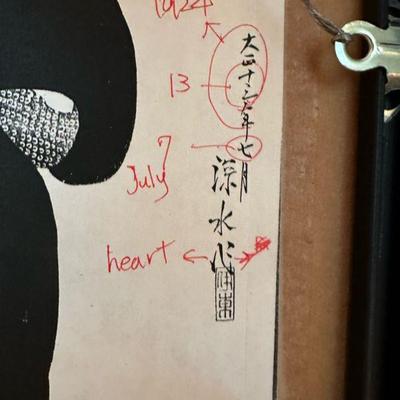 1924
大正十三年七月
13
7
July
深水作
heart
伊東